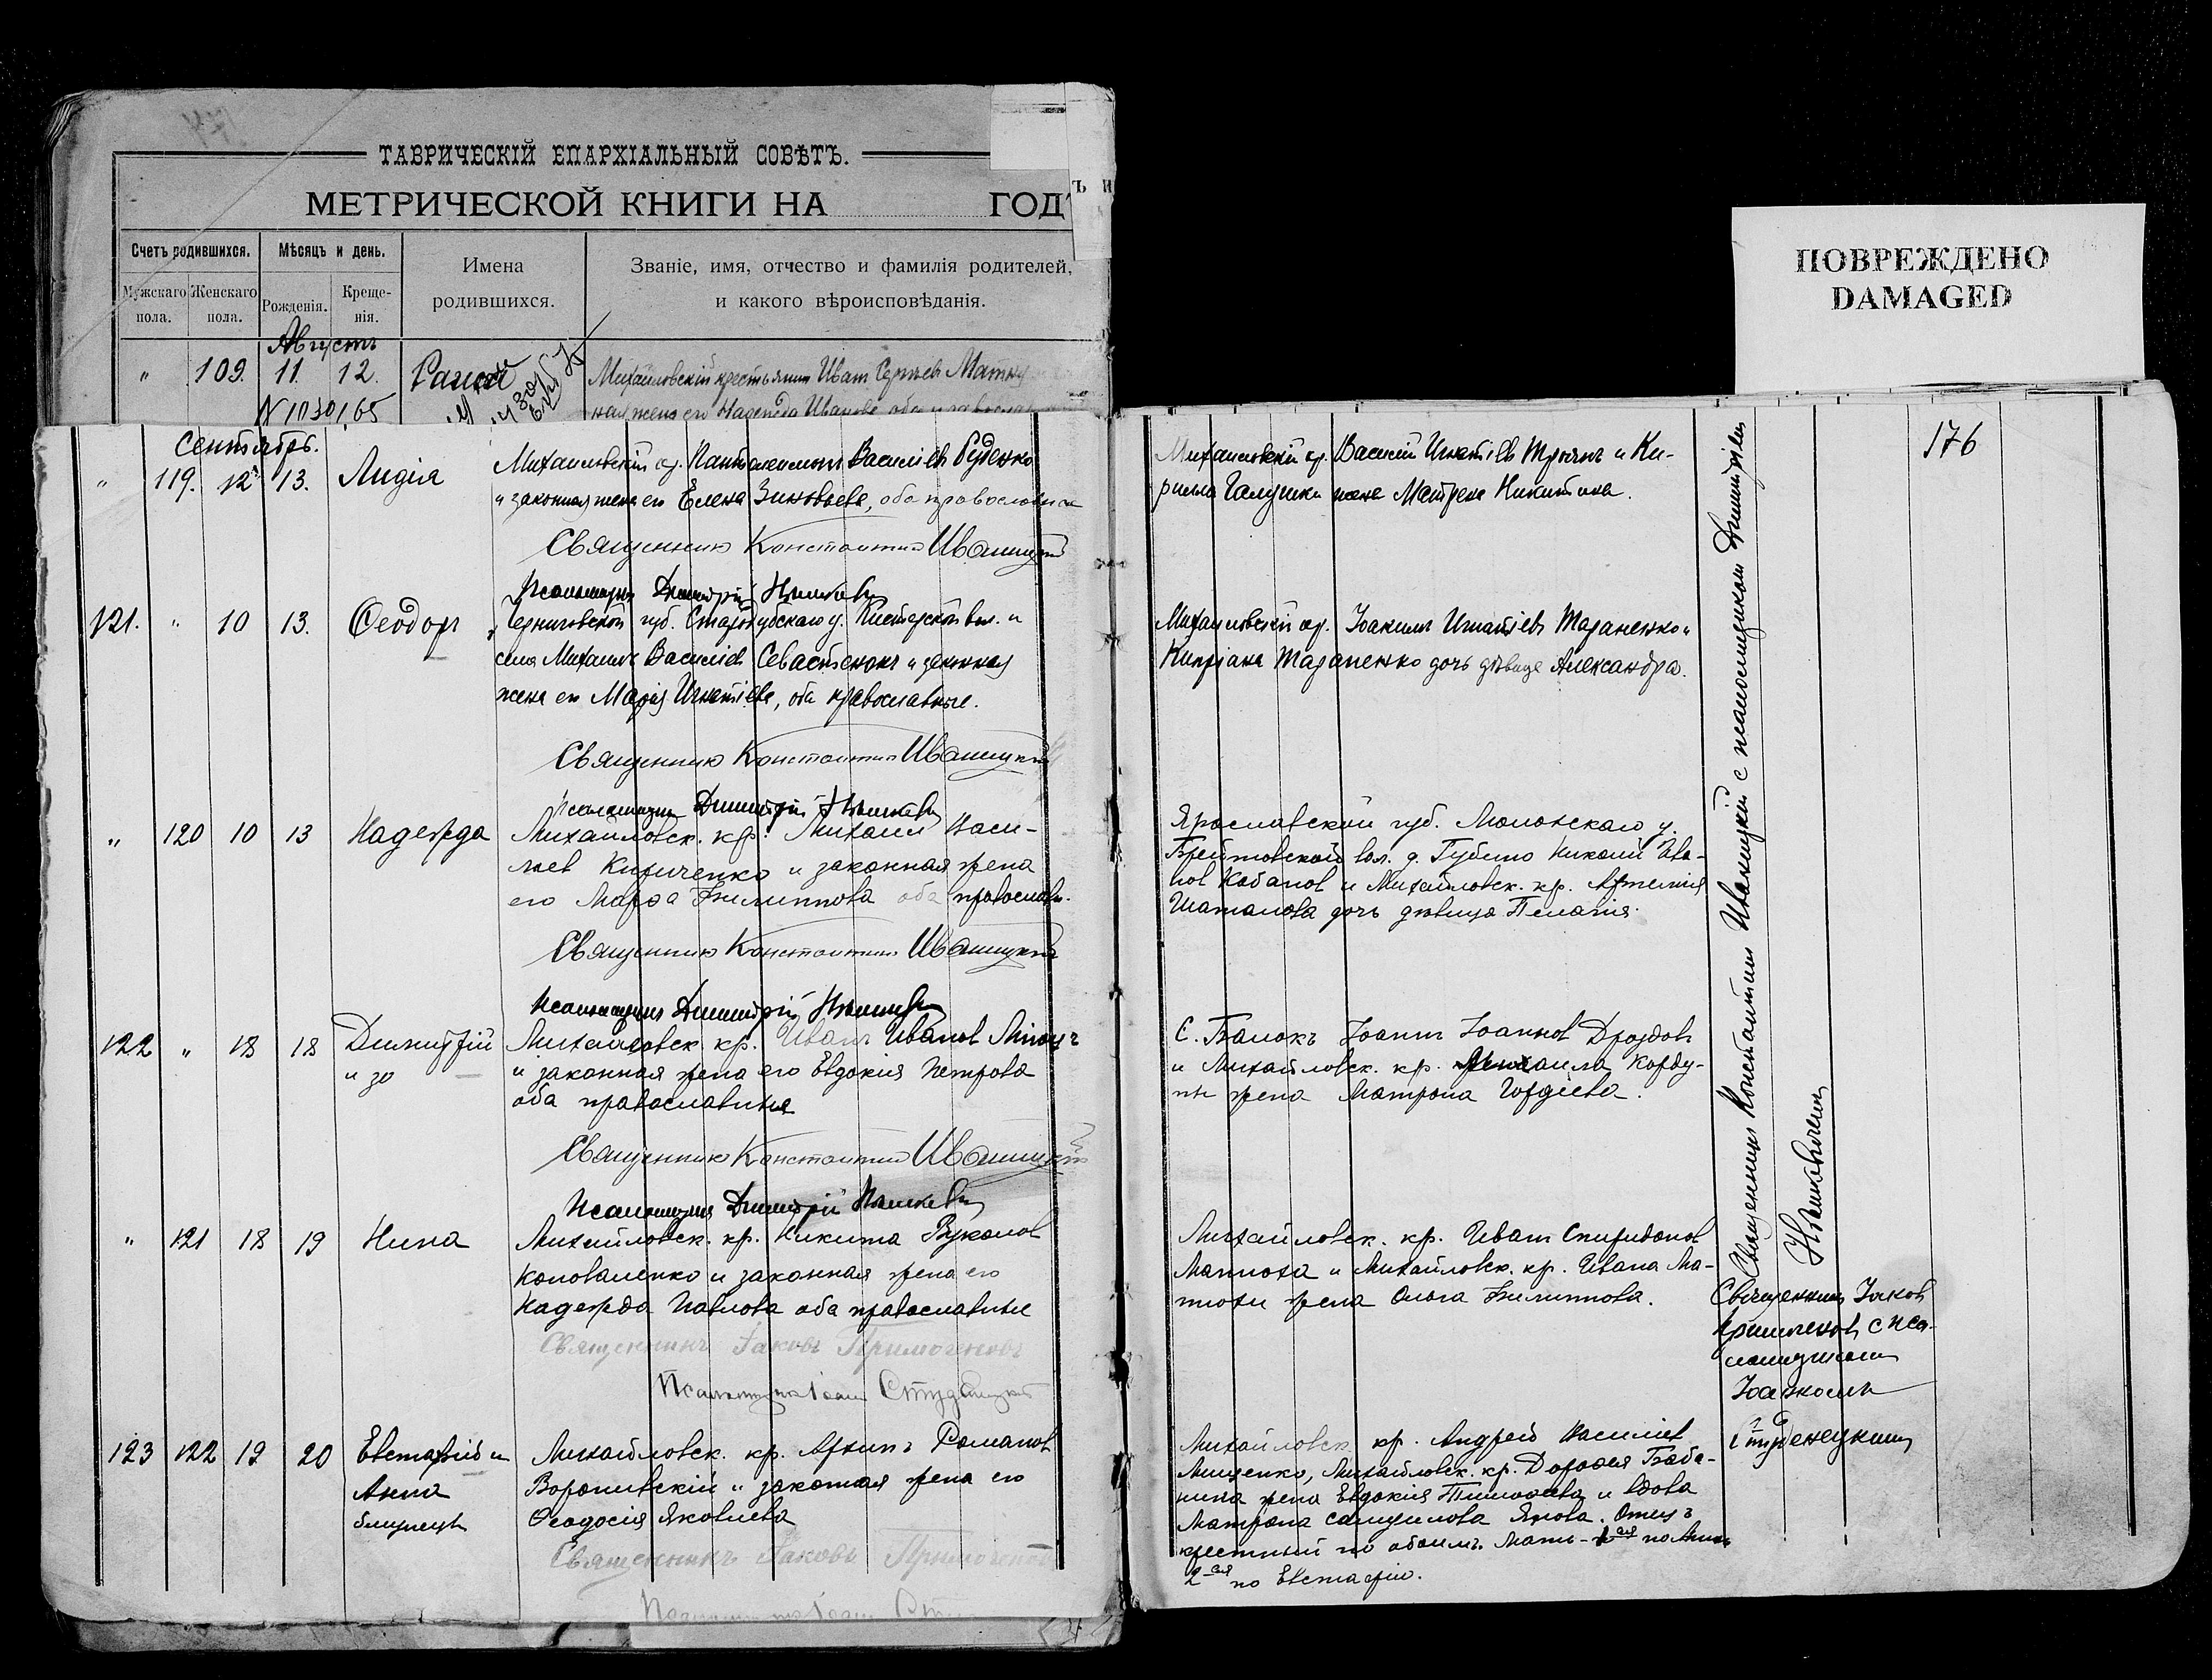 ТАВРИЧЕСКІЙ ЕПАРХІАЛЬНЫЙ СОВѢТЪ.
МЕТРИЧЕСКОЙ КНИГИ НА ГОДЪ
Счетъ родившихся.
Мѣсяцъ и день.
Имена
родившихся.
Званіе, имя, отчество и фамилія родителей,
и какого вѣроисповѣданія.
Мужскаго
пола.
Женскаго
пола.
Рожденія.
Креще-
нія.
Августъ
" 109. 11. 12.
Михайловскій крестьянин Иван
ная жена его Надежда Иванова оба
ПОВРЕЖДЕНО
DAMAGED
176
Сентябрь.
" 119. 12 13. Лидія
Михайловскій кр. Пантолеимонъ Василіевъ Руденко
и законная жена его Елена Зиновьева, оба православные
Священникъ Константин Ивашицкій
Псаломщик Димитрій
Михайловскій кр. Василій Игнатіевъ и Ки-
рилла Галушки жена Матрена Никитина.
121. " 10 13. Ѳеодоръ
Черниговской губ. Стародубскаго у. вол. и
села Михаилъ Василіев Севастенокъ и законная
жена его Марія Игнатіева, оба православные.
Священникъ Константин Ивашицкій
Псаломщик Димитрій
Михайловскій кр. Іоакимъ Игнатіевъ Тараненко и
Кипріана Тараненко дочь дѣвица Александра.
" 120 10 13 Надежда
Михайловск. кр. Михаил Васи-
льев Кириченко и законная жена
его Марѳа Филиппова оба православн.
Священникъ Константин Ивашицкій
Псаломщик Димитрій
Ярославской губ. Мологскаго у.
Брейтовской вол. д. Губино Николай Ива-
нов Кабанов и Михайловск. кр. Артемія
Шаталова дочь дѣвица Пелагія.
122 " 18 18 Димитрій
Михайловск. кр. Иванъ Иванов
и законная жена его Евдокия Петрова
оба православныя
Священникъ Константин Ивашицкій
Псаломщик Димитрій
С. Балокъ Іоанн Іоаннов Дроздов
и Михайловск. кр. Михаила Корду-
пы жена Матрона Гордіева.
" 121 18 19 Нина
Михайловск. кр. Никита Вуколов
Коноваленко и законная жена его
Надежда Павлова оба православныи
Священникъ Іаковъ Примоченковъ
Псаломщикъ Іоанн
Михайловск. кр. Иван Спиридонов
Матюха и Михайловск. кр. Ивана Ма-
тюхи жена Ольга Филиппова.
123 122 19 20 Евстафій и
Анна
близнецы
Михайловск. кр. Архипъ Романов
Воропивскій и законная жена его
Ѳеодосія Яковлева
Священникъ Іаковъ
Михайловск. кр. Андрей Василіев
Мищенко, Михайловск. кр. Дороѳея Баба-
нина жена Евдокия Тимоѳеева и вдова
Матрона Самуилова Янова. Отецъ
крестный по обоимъ. Мать - 1ая по Анне
2-ая по Евстафію.
Священник Константин Ивашицкій с псаломщиком Димитріем
Священник Іаков
Примоченков с пса-
ломщиком
Іоанном
Студенецким